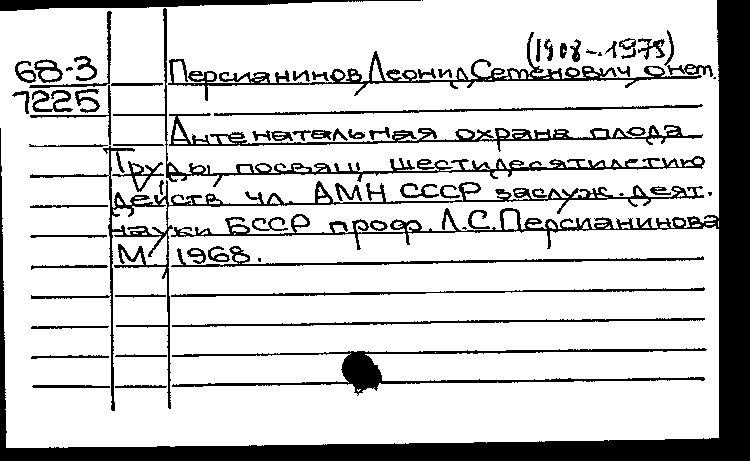 (1908-1978)
68-3 Персианинов, Леонид Семенович, о нем
7225
Антенатальная охрана плода
Труды, посвящ. шестидесятилетию
действ. чл. АМН СССР заслуж. деят.
науки БССР проф. Л.С. Персианинова
М., 1968.